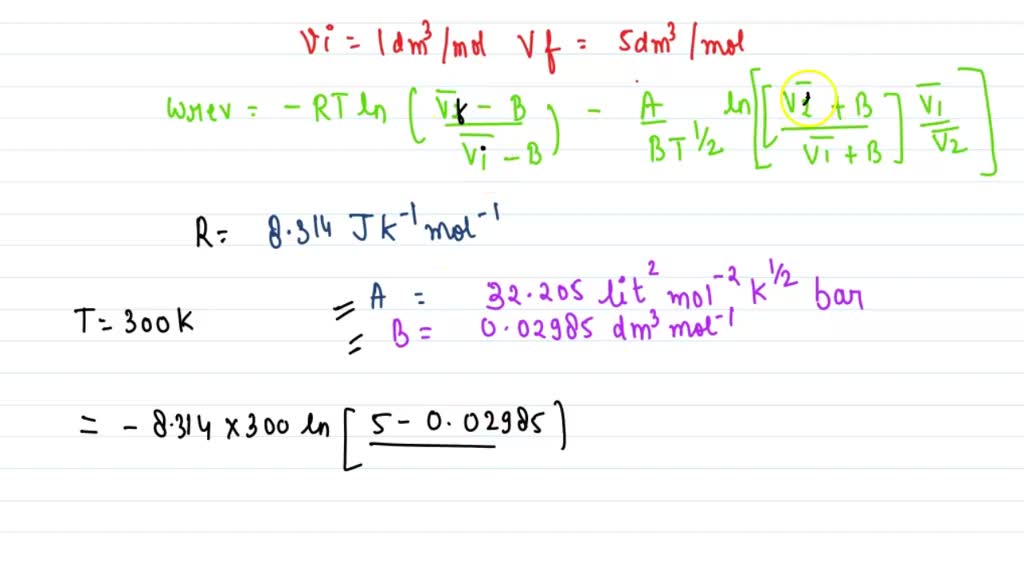 Vi = 1dm³/mol Vf = 5dm³/mol
wrev = - RT ln ( V̅f - B / V̅i - B ) - A / BT^1/2 ln [ [ V̅2 + B / V̅1 + B ] V̅1 / V̅2 ]
R = 8.314 J K⁻¹ mol⁻¹
= A = 32.205 lit² mol⁻² K^1/2 bar
T = 300K
= B = 0.02985 dm³ mol⁻¹
= - 8.314 × 300 ln [ 5 - 0.02985 ]